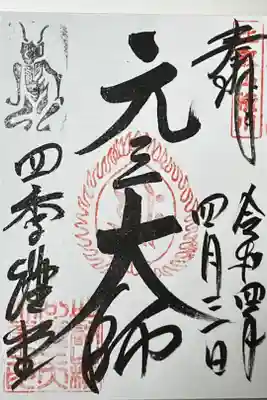 奉拝
令和四年
四月三日
元三大師
四季講堂